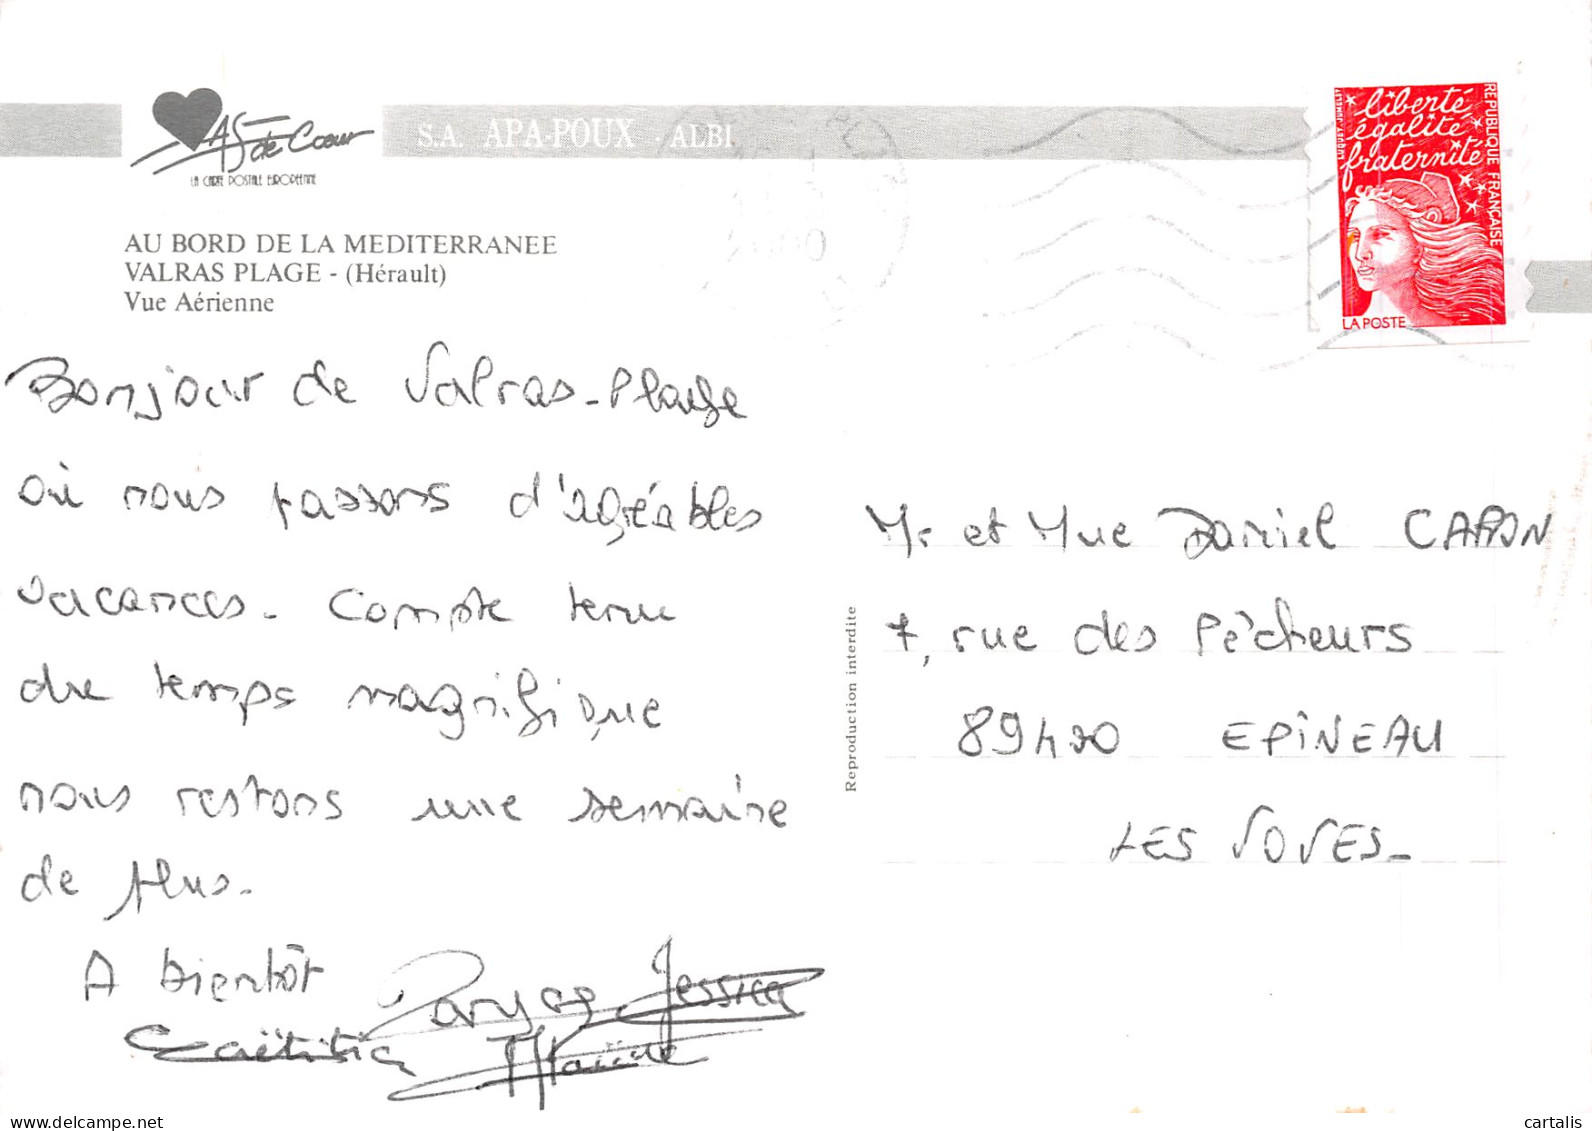 AS de Coeur
LA CARTE POSTALE EUROPÉENNE
S.A. APA-POUX - ALBI
AU BORD DE LA MEDITERRANEE
VALRAS PLAGE - (Hérault)
Vue Aérienne
liberté
égalité
fraternité
REPUBLIQUE FRANÇAISE
LA POSTE
Bonjour de Valras-Plage
où nous passons d'agréables
vacances. Compte tenu
du temps magnifique
nous restons une semaine
de plus.
A bientôt
Jessica
Laëtitia
Reproduction interdite
Mr et Mme Daniel CAPON
7, rue des Pêcheurs
89400 EPINEAU
LES VOVES_
delcampe.net
cartalis